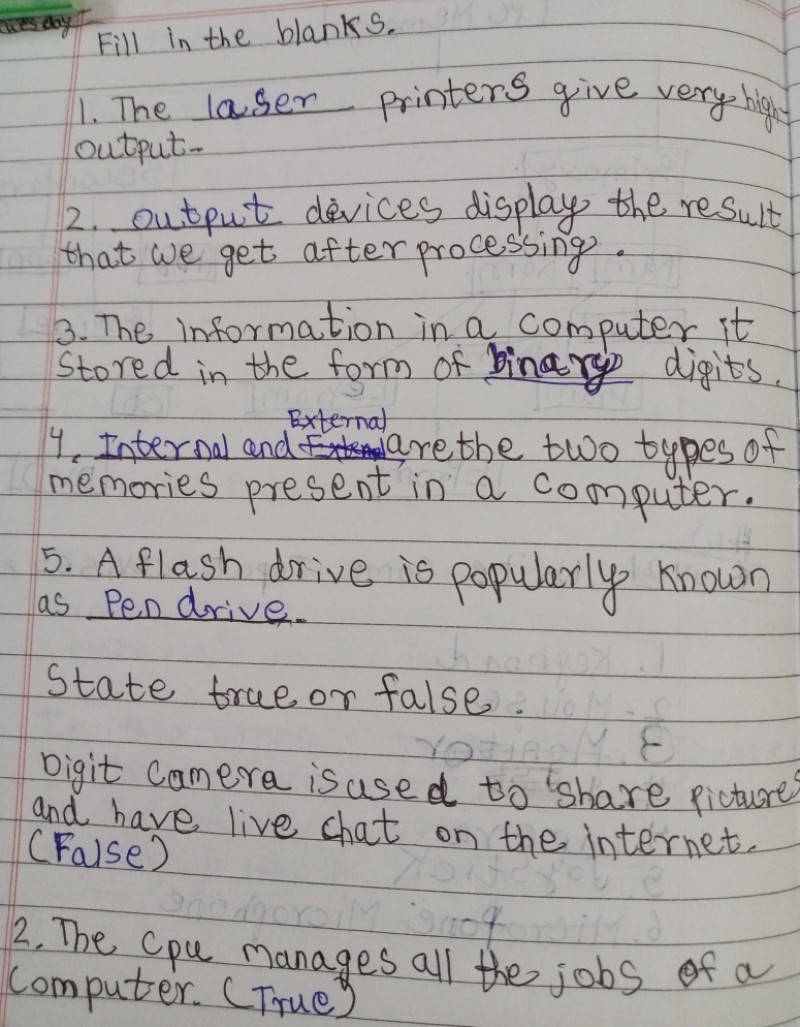 Fill in the blanks.
1. The laser printers give very high
output-
2. output devices display the result
that we get after processing.
3. The information in a computer it
Stored in the form of binary digits.
External
4. Internal and are the two types of
memories present in a computer.
5. A flash drive is popularly known
as Pen drive.
State true or false.
Digit camera is used to share pictures
and have live chat on the internet.
(False)
2. The cpu manages all the jobs of a
computer. (True)